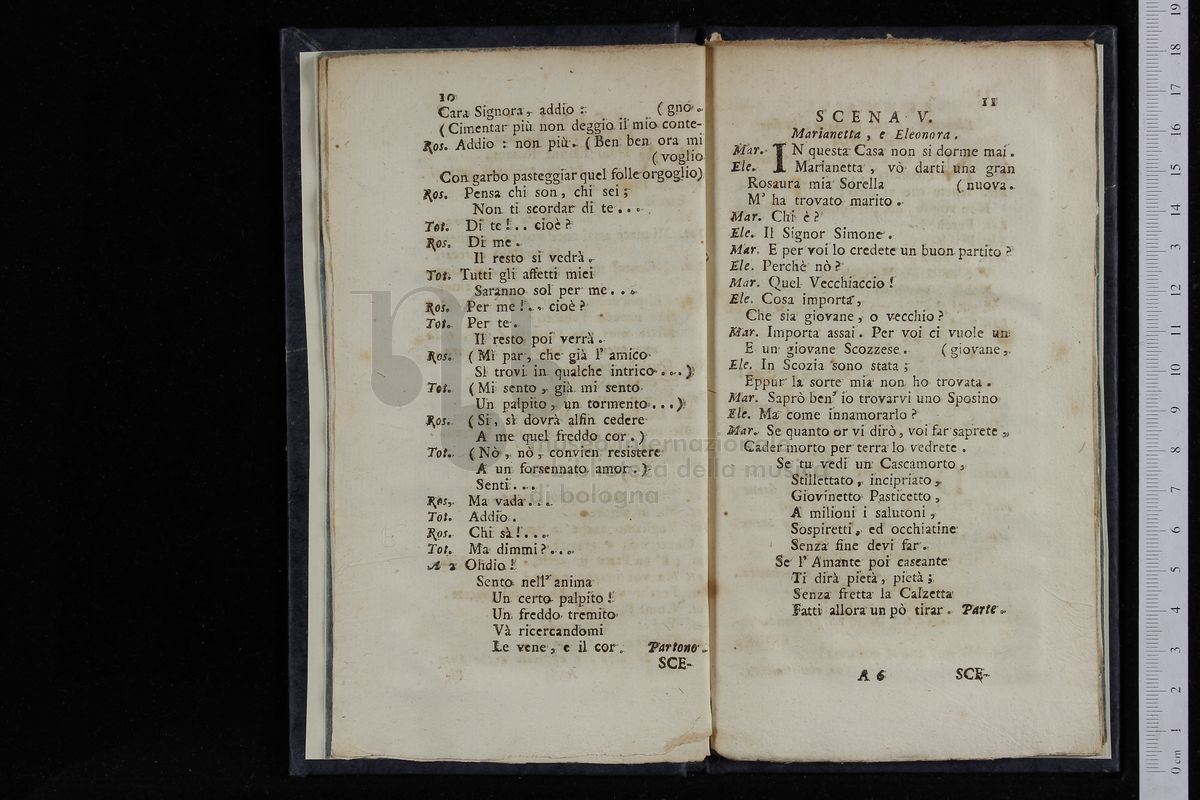 10
Cara Signora, addio : (gno.
(Cimentar più non deggio il mio conte-
Ros. Addio : non più. (Ben ben ora mi
(voglio
Con garbo pasteggiar quel folle orgoglio)
Ros. Pensa chi son, chi sei;
Non ti scordar di te...
Tot. Di te!.. cioè?
Ros. Di me.
Il resto si vedrà.
Tot. Tutti gli affetti miei
Saranno sol per me...
Ros. Per me!.. cioè?
Tot. Per te.
Il resto poi verrà.
Ros. (Mi par, che già l' amico
Si trovi in qualche intrico....)
Tot. (Mi sento, già mi sento
Un palpito, un tormento...)
Ros. (Si, sì dovrà alfin cedere
A me quel freddo cor.)
Tot. (Nò, nò, convien resistere
A un forsennato amor.)
Senti...
Ros. Ma vada...
Tot. Addio.
Ros. Chi sà!...
Tot. Ma dimmi?...
A 2 Ohdio!
Sento nell' anima
Un certo palpito!
Un freddo tremito
Và ricercandomi
Le vene, e il cor. Partono.
SCE-
11
SCENA V.
Marianetta, e Eleonora.
Mar. IN questa Casa non si dorme mai.
Ele. Marianetta, vò darti una gran
Rosaura mia Sorella (nuova.
M' ha trovato marito.
Mar. Chi è?
Ele. Il Signor Simone.
Mar. E per voi lo credete un buon partito?
Ele. Perchè nò?
Mar. Quel Vecchiaccio!
Ele. Cosa importa,
Che sia giovane, o vecchio?
Mar. Importa assai. Per voi ci vuole un
E un giovane Scozzese. (giovane,
Ele. In Scozia sono stata;
Eppur la sorte mia non ho trovata.
Mar. Saprò ben' io trovarvi uno Sposino
Ele. Ma come innamorarlo?
Mar. Se quanto or vi dirò, voi far saprete,
Cader morto per terra lo vedrete.
Se tu vedi un Cascamorto,
Stillettato, incipriato,
Giovinetto Pasticetto,
A milioni i salutoni,
Sospiretti, ed occhiatine
Senza fine devi far.
Se l' Amante poi cascante
Ti dirà pietà, pietà;
Senza fretta la Calzetta
Fatti allora un pò tirar. Parte.
A 6 SCE-
museo internazionale
e biblioteca della musica
di bologna
0 cm 1 2 3 4 5 6 7 8 9 10 11 12 13 14 15 16 17 18 19